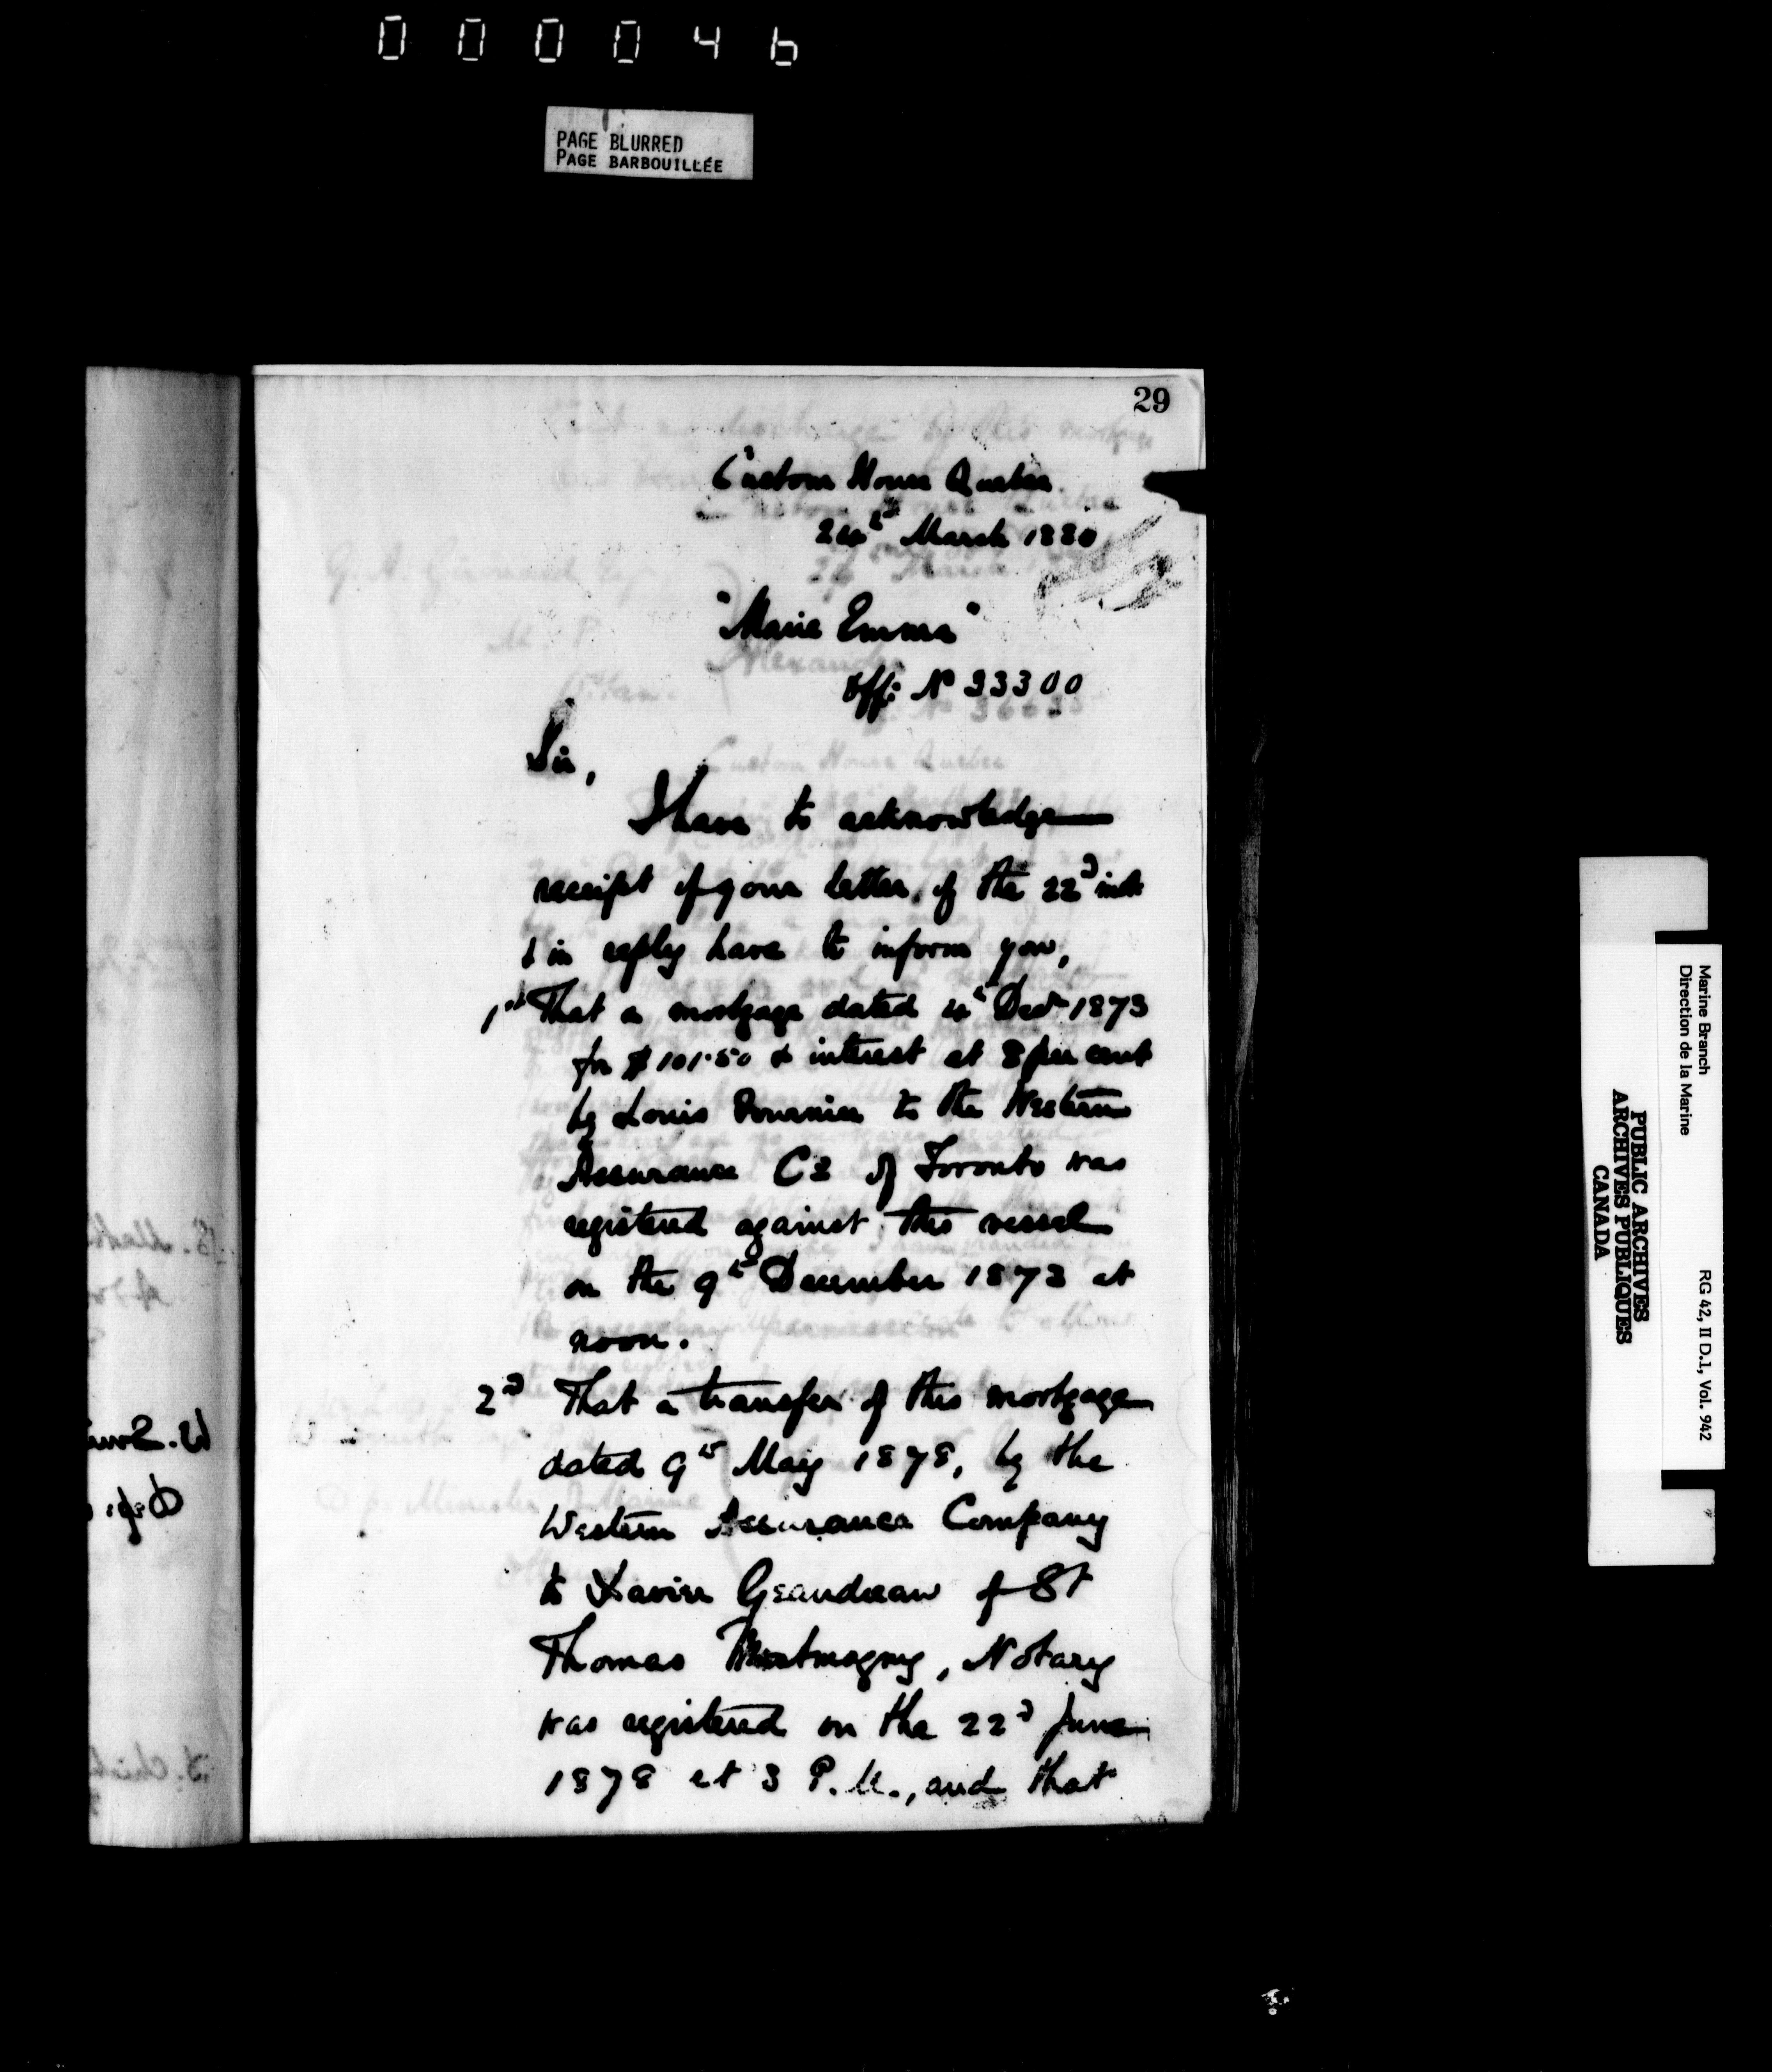 000046
PAGE BLURRED
PAGE BARBOUILLÉE
29
Custom House Quebec
24th March 1880
"Marie Emma"
Off: No 33300
Sir,
I have to acknowledge
receipt of your letter, of the 22d inst
& in reply have to inform you,
1st That a mortgage dated 4th Decr 1873
for $101.50 & interest at 8 per cent
by Louis Fournier to the Western
Assurance Co of Toronto was
registered against this vessel
on the 9th December 1873 at
noon.
2d That a transfer of this mortgage
dated 9th May 1878, by the
Western Assurance Company
to Xavier Geandreau of St
Thomas Montmagny, Notary
was registered on the 22d June
1878 at 3 P.M., and that
Marine Branch
Direction de la Marine
RG 42, II D.1, Vol. 942
PUBLIC ARCHIVES
ARCHIVES PUBLIQUES
CANADA